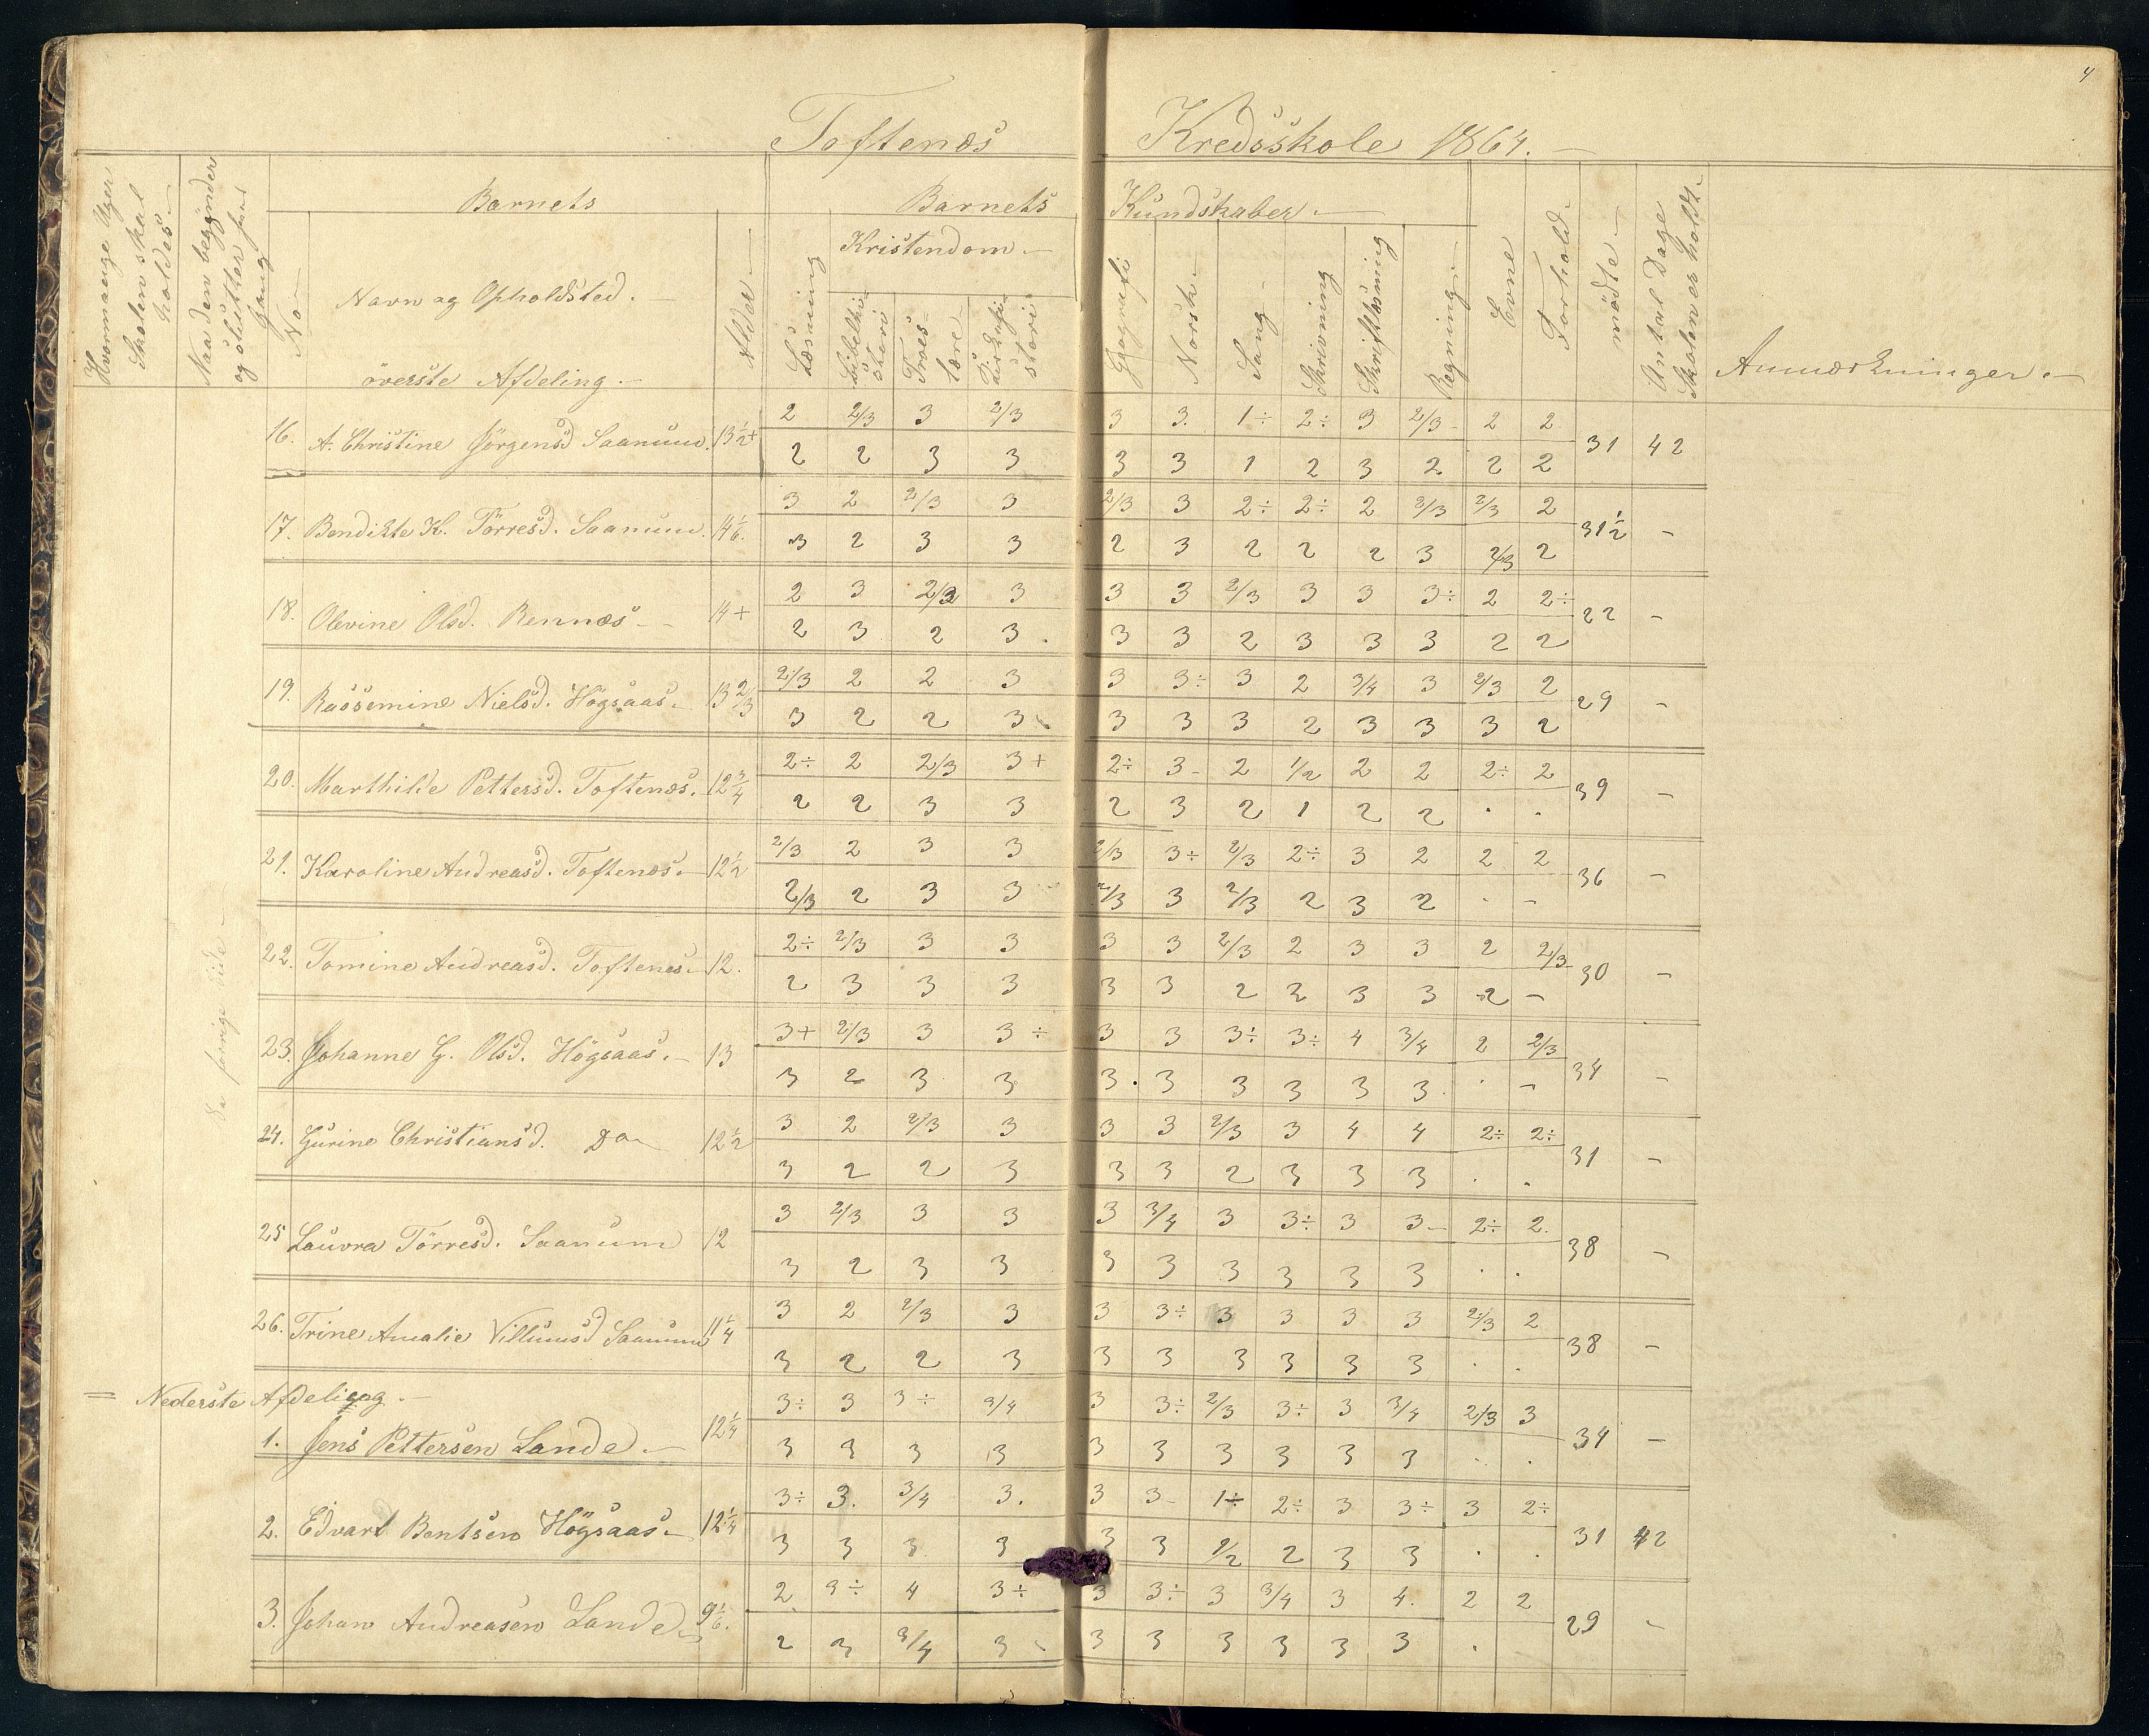 4
Toftenæs Kredsskole 1864.
Hvormange Uger Skolen skal holdes
Naar den begynder og slutter hver Gang
Barnets
Barnets Kundskaber.
No
Navn og Opholdsted.
øverste Afdeling.
Alder
Læsning
Kristendom
Bibelhistorie
Troeslære
Kirkehistorie
Geografi
Norsk
Sang
Skrivning
Skriftlæsning
Regning
Evne
Forhold
mødte
Antal Dage Skolen er holdt
Anmærkninger.
16. A. Christine Jörgensd Saanum. 13½+ 2 2/3 3 2/3 3 3. 1÷ 2÷ 3 2/3 2 2 31 42
2 2 3 3 3 3 1 2 3 2 2 2
17. Bendikte K. Törresd. Saanum. 14 1/6. 3 2 2/3 3 2/3 3 2÷ 2÷ 2 2/3 2/3 2 31½ -
3 2 3 3 2 3 2 2 2 3 2/3 2
18. Olevine Olsd. Rennæs 14+ 2 3 2/3 3 3 3 2/3 3 3 3÷ 2 2÷ 22 -
2 3 2 3. 3 3 2 3 3 3 2 2
19. Rassemine Nielsd. Högsaas. 13 2/3 2/3 2 2 3 3 3÷ 3 2 3/4 3 2/3 2 29 -
3 2 2 3 3 3 3 2 3 3 3 2
20. Marthilde Pettersd. Toftenæs. 12 3/4 2÷ 2 2/3 3+ 2÷ 3- 2 1/2 2 2 2÷ 2 39 -
2 2 3 3 2 3 2 1 2 2 . .
21. Karoline Andreasd. Toftenæs. 12½ 2/3 2 3 3 2/3 3÷ 2/3 2÷ 3 2 2 2 36 -
2/3 2 3 3 2/3 3 2/3 2 3 2 . -
22. Tomine Andreasd. Toftenæs. 12. 2÷ 2/3 3 3 3 3 2/3 2 3 3 2 2/3 30 -
2 3 3 3 3 3 2 2 3 3 2 -
23. Johanne G. Olsd. Högsaas. 13 3+ 2/3 3 3÷ 3 3 3÷ 3÷ 4 3/4 2 2/3 34 -
3 2 3 3 3. 3 3 3 3 3 . -
24. Gurine Christiansd. Do 12½ 3 2 2/3 3 3 3 2/3 3 4 4 2÷ 2÷ 31 -
3 2 2 3 3 3 2 3 3 3 . .
25 Lauvra Törresd. Saanum 12 3 2/3 3 3 3 3/4 3 3÷ 3 3- 2÷ 2. 38 -
3 2 3 3 3 3 3 3 3 3 . .
26. Trine Amalie Villumsd Saanum 11¼ 3 2 2/3 3 3 3÷ 3 3 3 3 2/3 2 38 -
3 2 2 3 3 3 3 3 3 3 . .
Se forrige Side
= Nederste Afdeling.
1. Jens Pettersen Lande. 12¼ 3÷ 3 3÷ 3/4 3 3÷ 2/3 3÷ 3 3/4 2/3 3 34 -
3 3 3 3 3 3 3 3 3 3 . .
2. Edvart Bentsen Högsaas. 12¼ 3÷ 3. 3/4 3. 3 3- 1÷ 2÷ 3 3÷ 3 2÷ 31 42
3 3 3 3 3 3 1/2 2 3 3 . .
3. Johan Andreasen Lande 9 1/6. 2 3÷ 4 3÷ 3 3÷ 3 3/4 3 4. 2 2 29 -
2 3 3/4 3 3 3 3 3 3 3 .